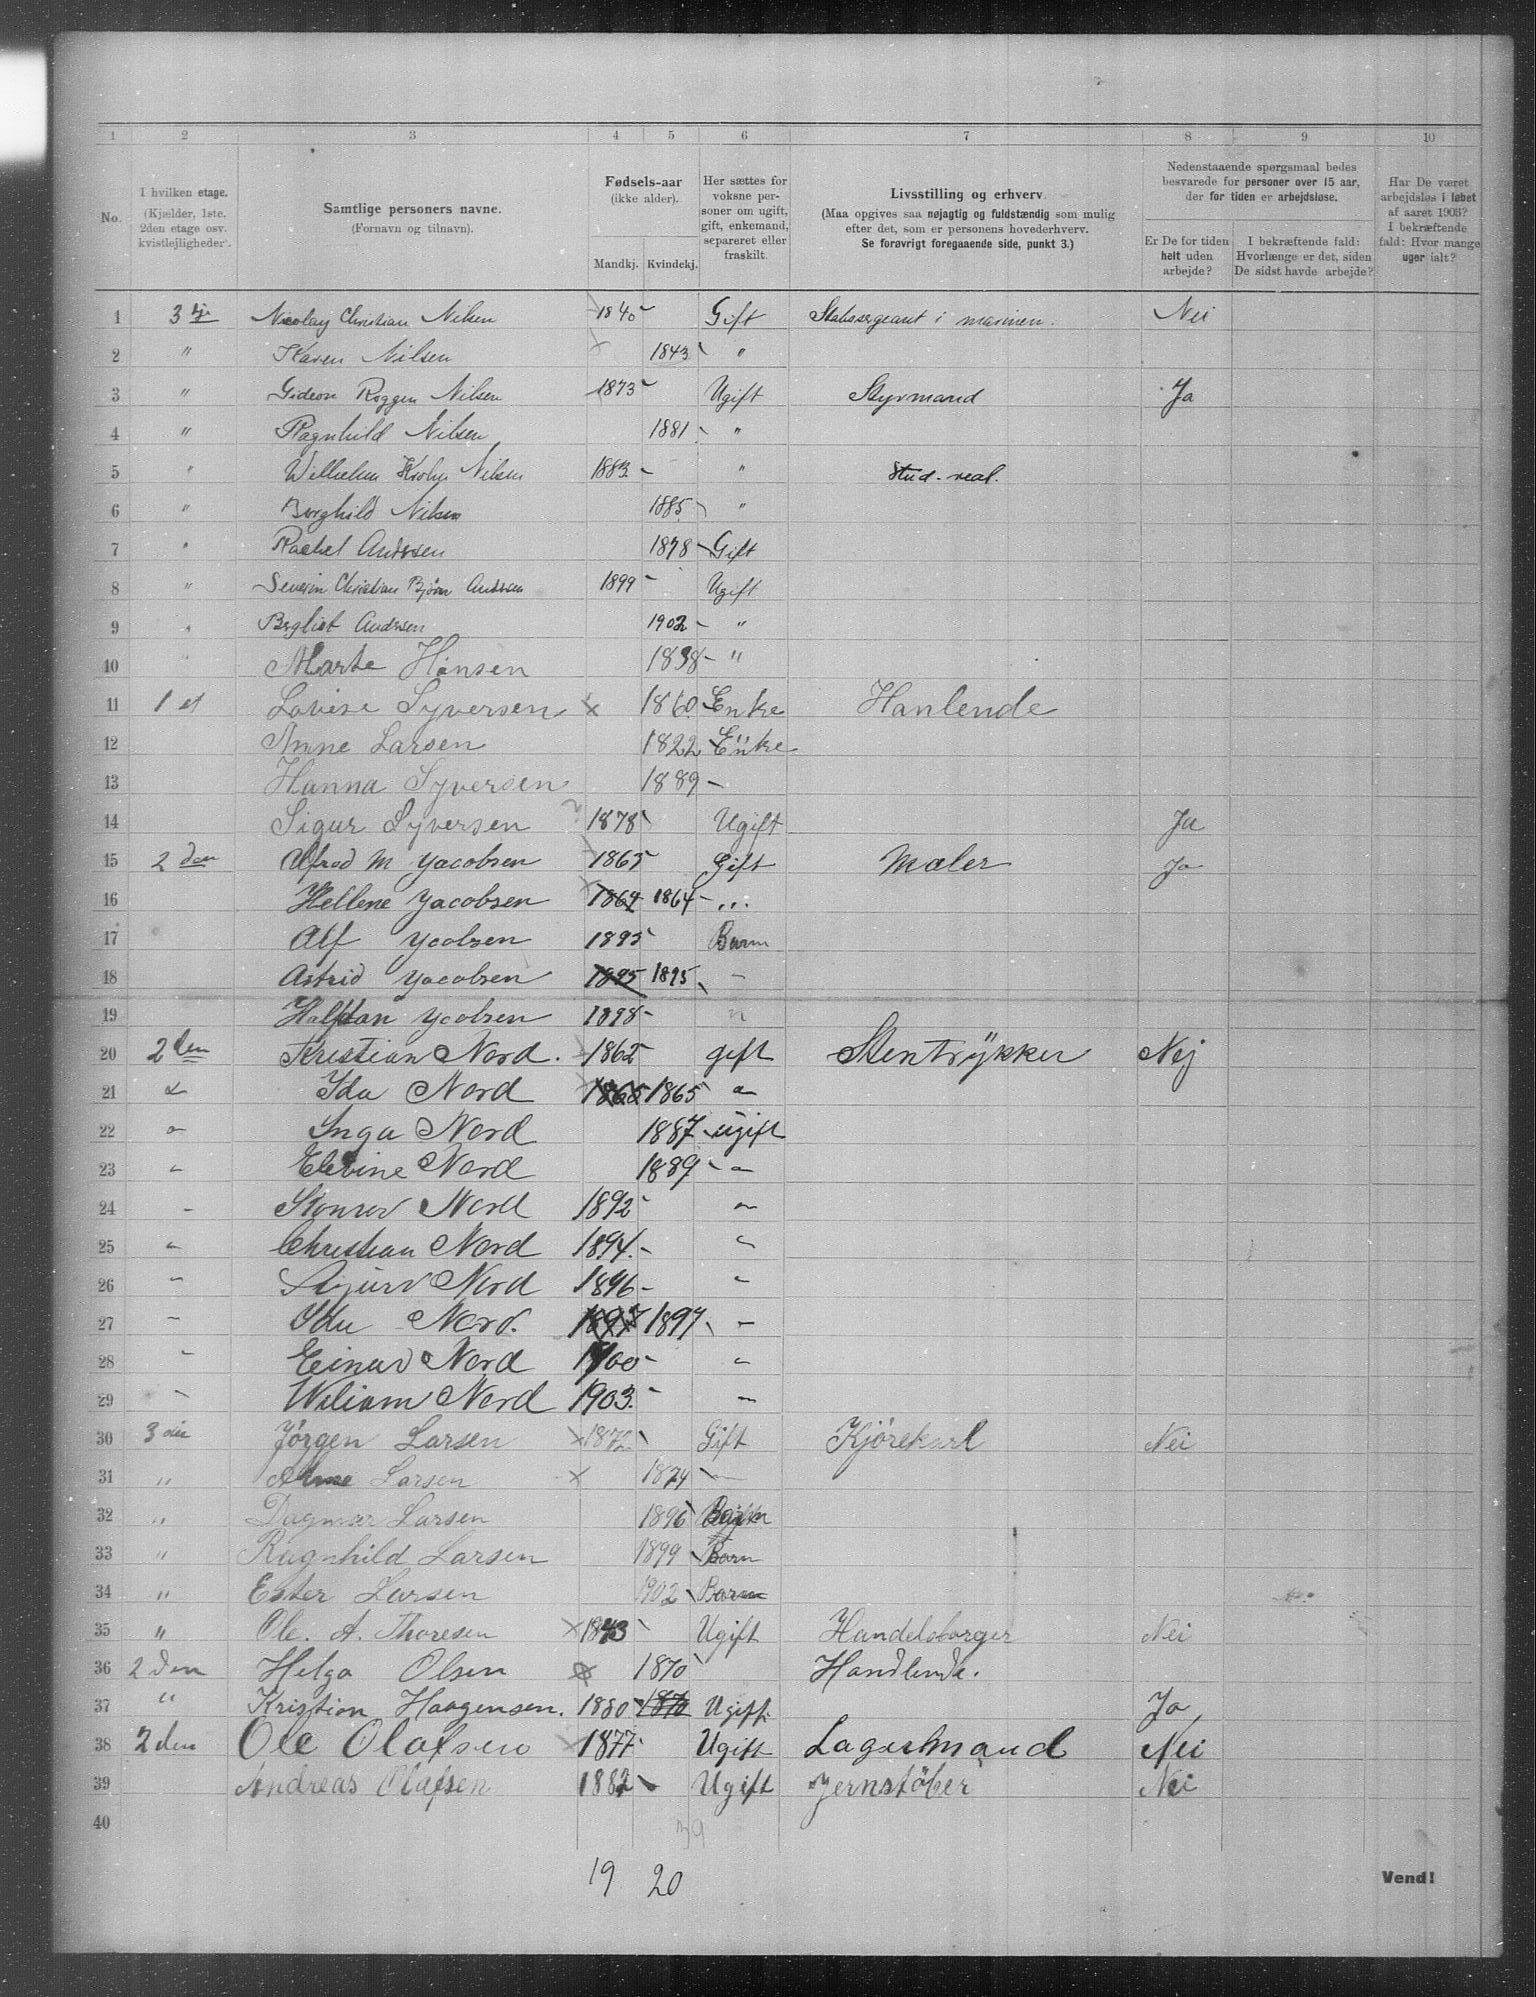 1 2 3 4 5 6 7 8 9 10
No.
I hvilken etage.
(Kjælder, 1ste.
2den etage osv.
kvistlejligheder.
Samtlige personers navne.
(Fornavn og tilnavn).
Fødsels-aar
(ikke alder).
Mandkj. Kvindekj.
Her sættes for
voksne per-
soner om ugift,
gift, enkemand,
separeret eller
fraskilt.
Livsstilling og erhverv
(Maa opgives saa nøjagtig og fuldstændig som mulig
efter det, som er personens hovederhverv.
Se forøvrigt foregaaende side, punkt 3.)
Nedenstaaende spørgsmaal bedes
besvarede for personer over 15 aar,
der for tiden er arbejdsløse.
Er De for tiden
helt uden
arbejde?
I bekræftende fald:
Hvorlænge er det, siden
De sidst havde arbejde?
Har De været
arbejdsløs i løbet
af aaret 1903?
I bekræftende
fald: Hvor mange
uger ialt?
1 3 Nicolay Christian Nilsen 1840 Gift Stabssergeant i marinen. Nei
2 " Karen Nilsen 1843 "
3 " Gideon Roggen Nilsen 1873 Ugift Styrmand Ja
4 " Ragnhild Nilsen 1881 "
5 " Wilhelm Krohn Nilsen 1883 " Stud. real.
6 " Borghild Nilsen 1885 "
7 " Rachel Andssen 1878 Gift
8 " Severin Christian Bjørn Andssen 1899 Ugift
9 " Bergliot Andssen 1902 "
10 " Marte Hansen 1838 "
11 1 et Lovise Syversen x 1860 Enke Hanlende
12 Anne Larsen 1822 Enke
13 Hanna Syversen 1889 -
14 Sigur Syversen 1878 Ugift Ja
15 2 den Alfred M Yacobsen 1865 Gift Maler Ja
16 Hellene Yacobsen 1864 1864 "
17 Alf Ycobsen 1895 Barn
18 Astrid Yacobsen 1895 1895 -
19 Halfdan Ycobsen 1898 "
20 2 den Kristian Nord. 1862 gift Stentrykker Nej
21 " Ida Nord 1865 1865 "
22 " Inga Nord 1887 ugift
23 " Elvine Nord 1889 "
24 " Konrad Nord 1892 "
25 " Christian Nord 1894. "
26 " Sigurd Nord 1896 "
27 " Ida Nord. 1897 1897 "
28 " Einar Nord 1900 "
29 " Wiliam Nord 1903. "
30 3 die Jörgen Larsen x Gift Kjörekarl Nei
31 " Larsen x 1874 "
32 " Dagmar Larsen 1896 Barn
33 " Ragnhild Larsen 1899 Barn
34 " Ester Larsen 1902 Barn
35 " Ole. A. Thoresen x 1843 Ugift Handelsborger Nei
36 2 den Helga Olsen x 1870 Handlende.
37 " Kristian Haagensen. 1880 1870 Ugift. Ja
38 2 den Ole Olafsen 1877 Ugift Lagermand Nei
39 Andreas Olafsen 1882 Ugift Jernstöber Nei
40
39
19 20
Vend!